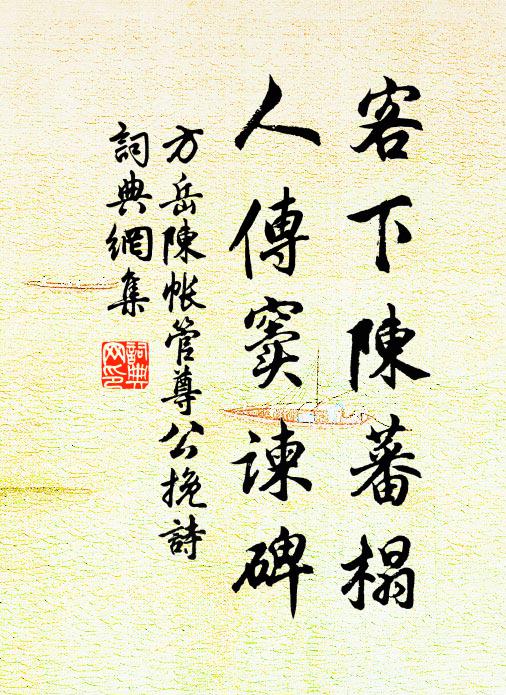 客下陳蕃榻
人傳竇諫碑
方岳陳帐管尊公挽詩
詞典網集
詞典網印